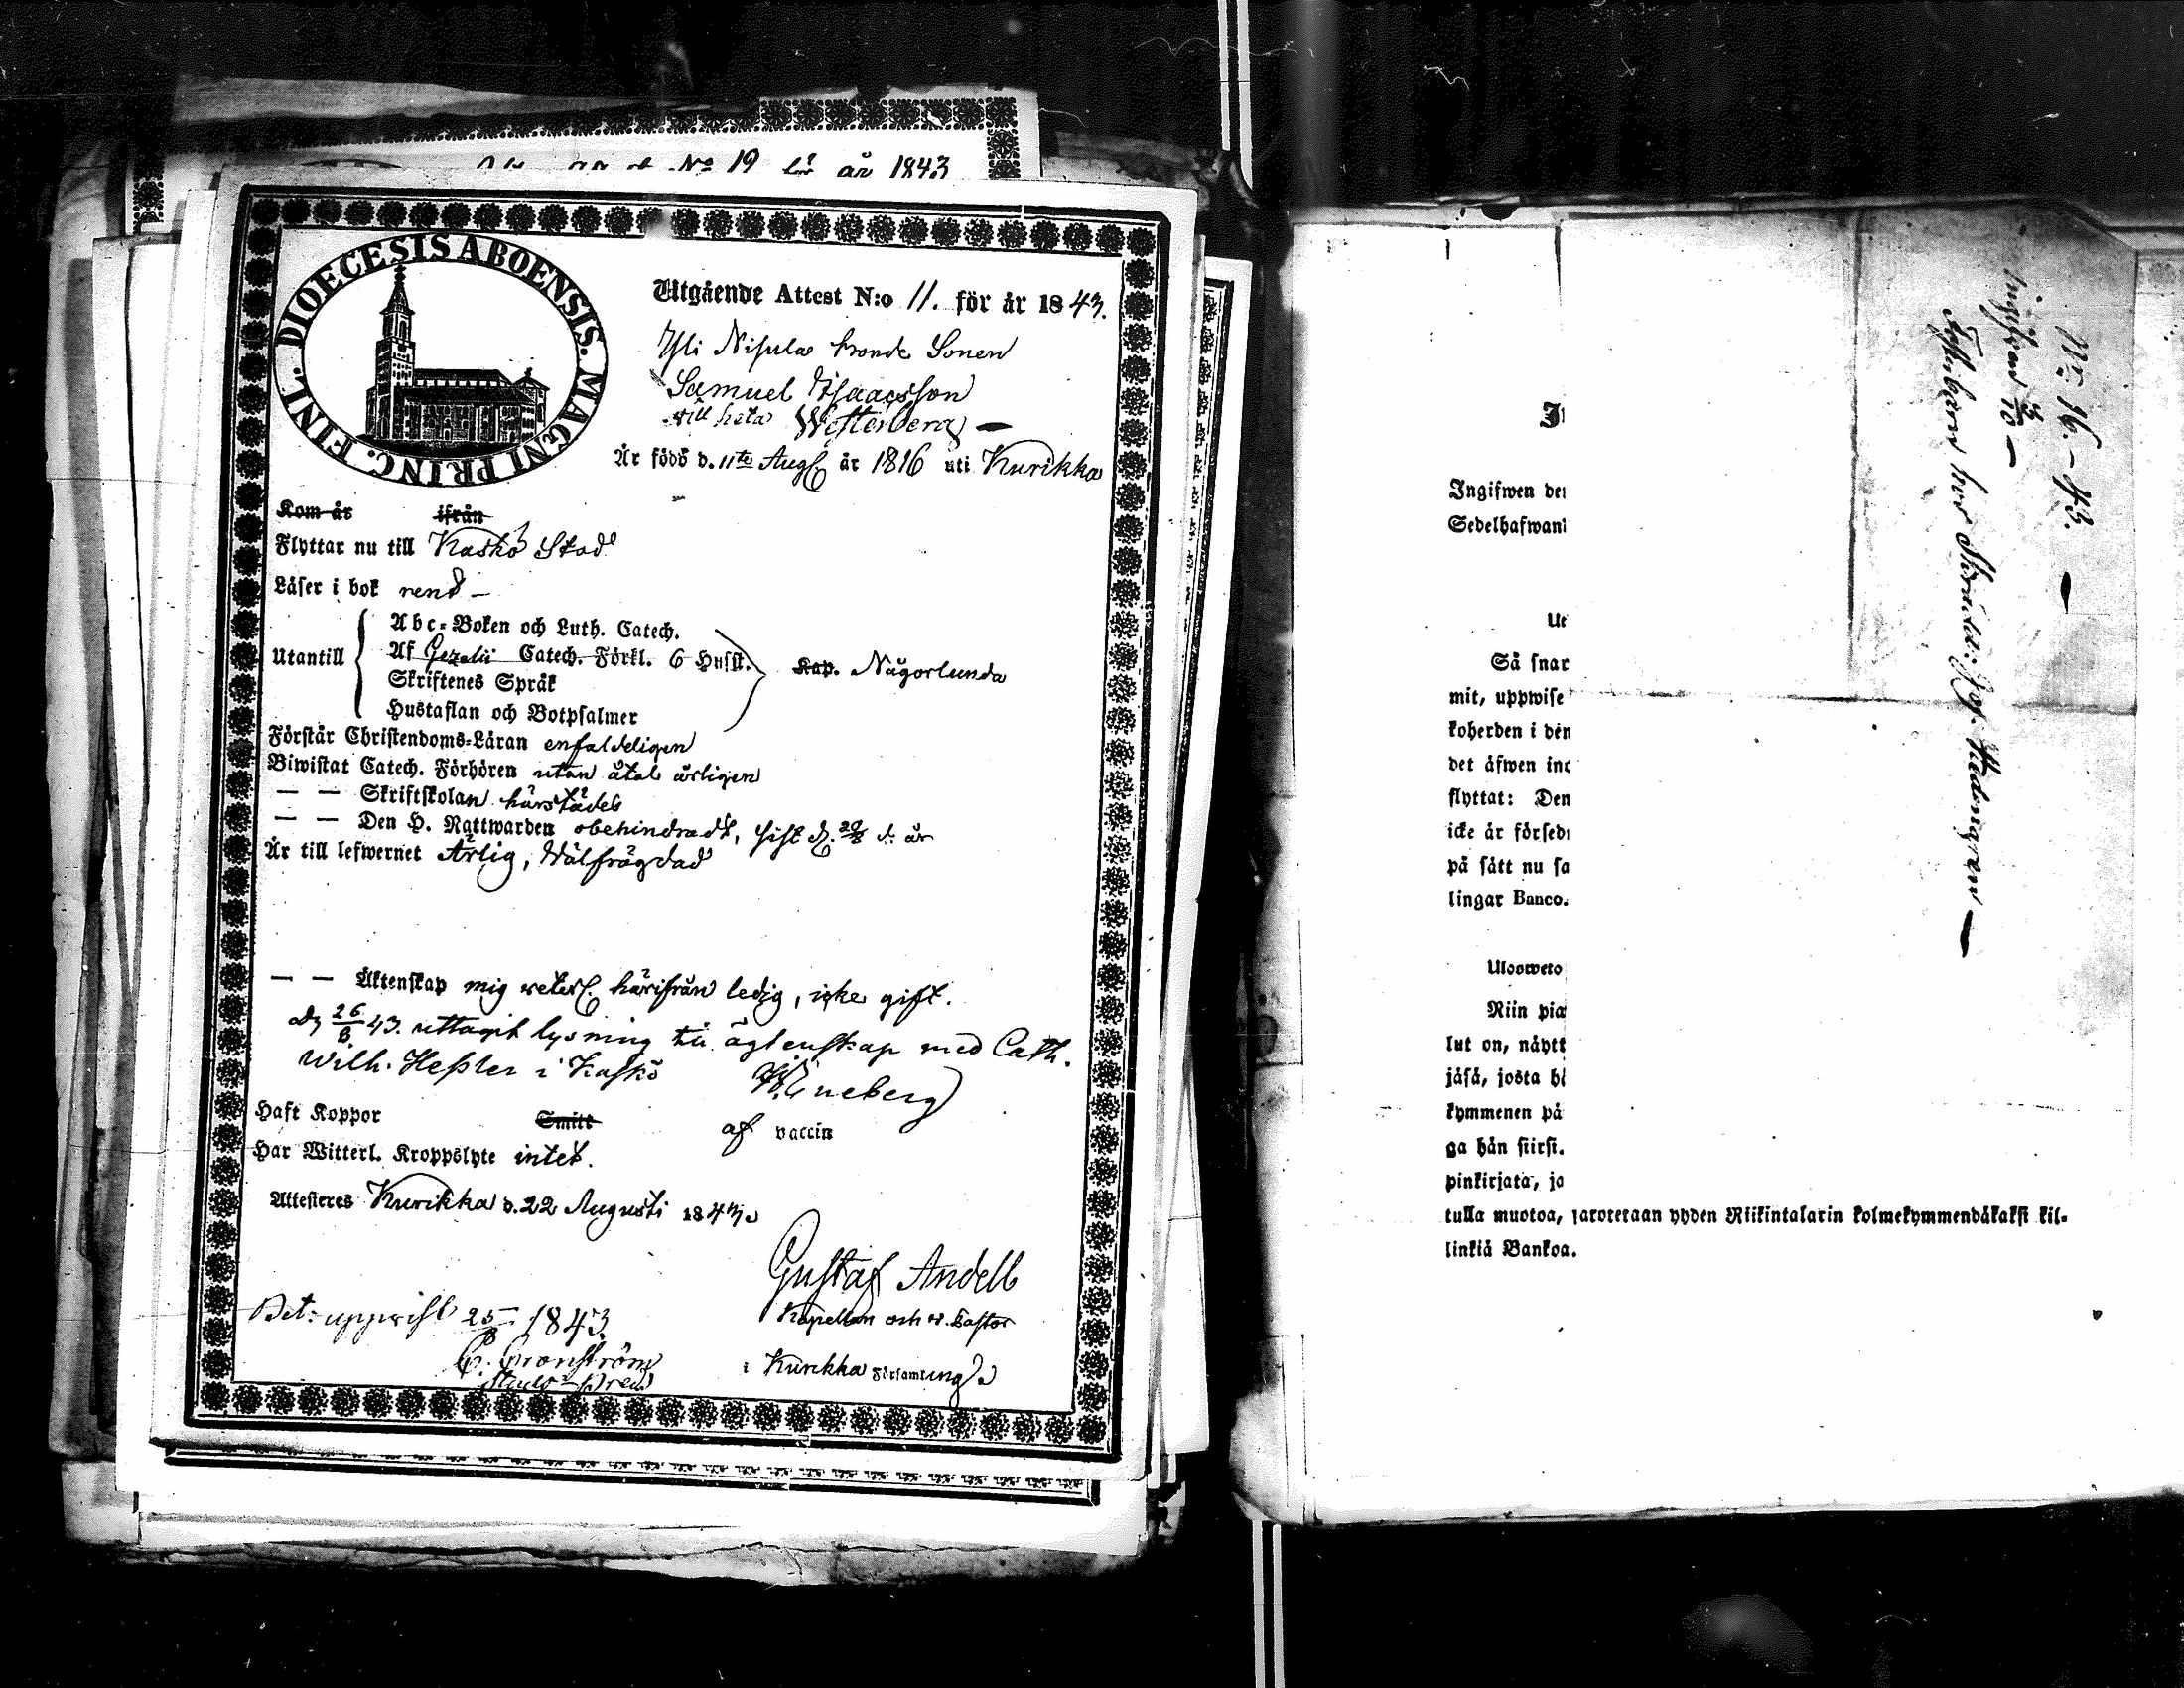 No 19 för år 1843
DIOECESIS ABOENSIS. MAGNI PRINC. FINL.
Utgående Attest N:o 11. för år 1843.
Yli Nisula bonde Sonen
Samuel Isaacsson
vill heta Westerberg —
Är född d. 11te Aug. år 1816 uti Kurikka
Kom år ifrån
Flyttar nu till Kaskö Stad
Läser i bok rent —
Utantill
Abc-Boken och Luth. Catech.
Af Gezelii Catech. Förkl. 6 Husst.
Skriftenes Språk
Hustaflan och Botpsalmer
Kap. Någorlunda
Förstår Christendoms-Läran enfaldeligen
Biwistat Catech. Förhören utan åtal årligen
— — Skriftskolan härstädes
— — Den H. Nattwarden obehindradt, sist d. d. år
Är till lefwernet Ärlig, Wälfrägdad
— — Äktenskap mig veterl. härifrån ledig, icke gift.
d. 26/8 43. uttagit lysning till ägtenskap med Cath.
Wilh. Hessler i Kaskö
Eneberg
Haft Koppor Smitt af vaccin
Har Witterl. Kroppslyte intet.
Attesteres Kurikka d. 22 Augusti 1843.
Gustaf Andell
Kapellan och v. Pastor
i Kurikka Församling
Bet: uppvist 25/8 1843
C. Cronström
Ingifwen de
Sedelhafwan
Så snar
mit, uppwise
koherden i den
det äfwen in
flyttat: Den
icke är förse
på sätt nu sa
lingar Banco.
Uloosweto
Riin pia
lut on, näytt
jäsä, josta h
kymmenen pä
ga hän siirsi.
pinkirjata, ja
tulla muotoa, yhden Riikintalarin kolmekymmendäkaksi kil-
linkiä Bankoa.
No 16. – 43. —
ingifven 3/10 —